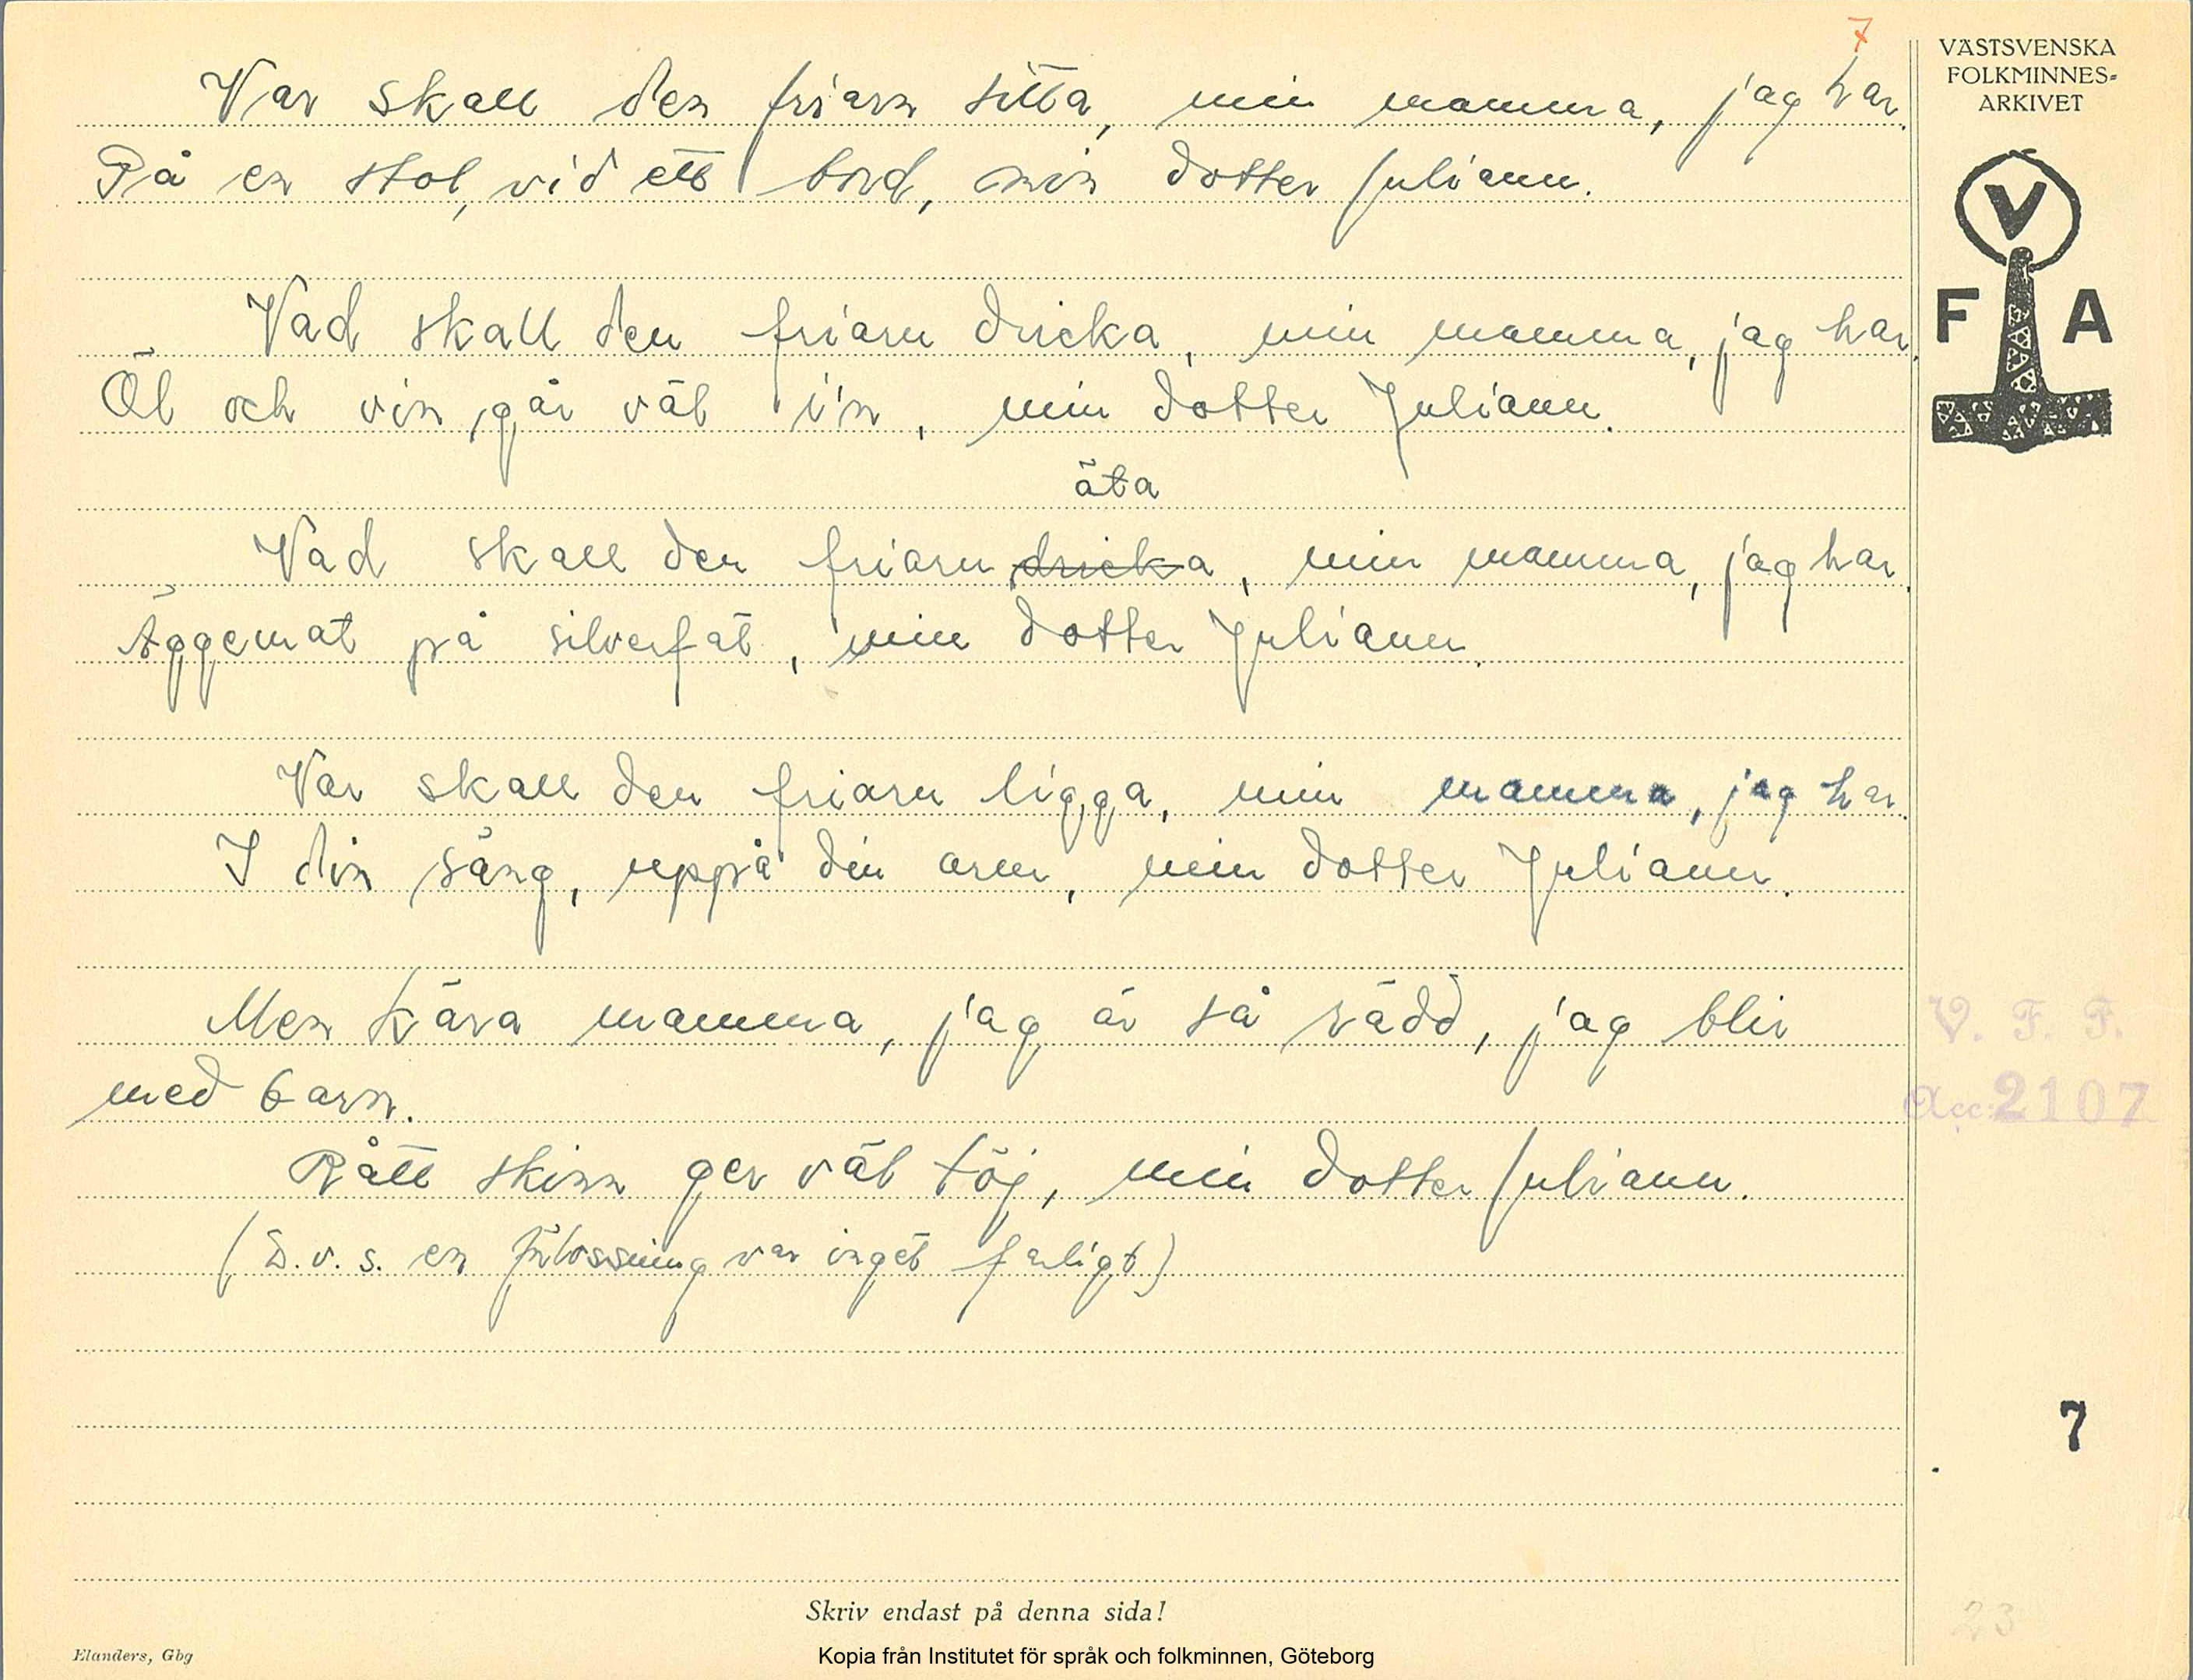 7
Var skall den friarn sitta, min mamma, jag har.
På en stol, vid ett bord, min dotter Juliann.
Vad skall den friarn dricka, min mamma, jag har.
Öl och vin går väl i'n, min dotter Juliann.
äta
Vad skall den friarn dricka, min mamma, jag har.
Äggemat på silverfat, min dotter Juliann.
Var skall den friarn ligga, min mamma, jag har.
I din säng, uppå din arm, min dotter Juliann.
Men kära mamma, jag är så rädd, jag blir
med barn.
Rått skinn ger väl töj, min dotter Juliann.
(D.v.s. en förlossning var inget farligt)
VÄSTSVENSKA
FOLKMINNES-
ARKIVET
V
F A
V. F. F.
Acc: 2107
7
23
Skriv endast på denna sida!
Elanders, Gbg
Kopia från Institutet för språk och folkminnen, Göteborg